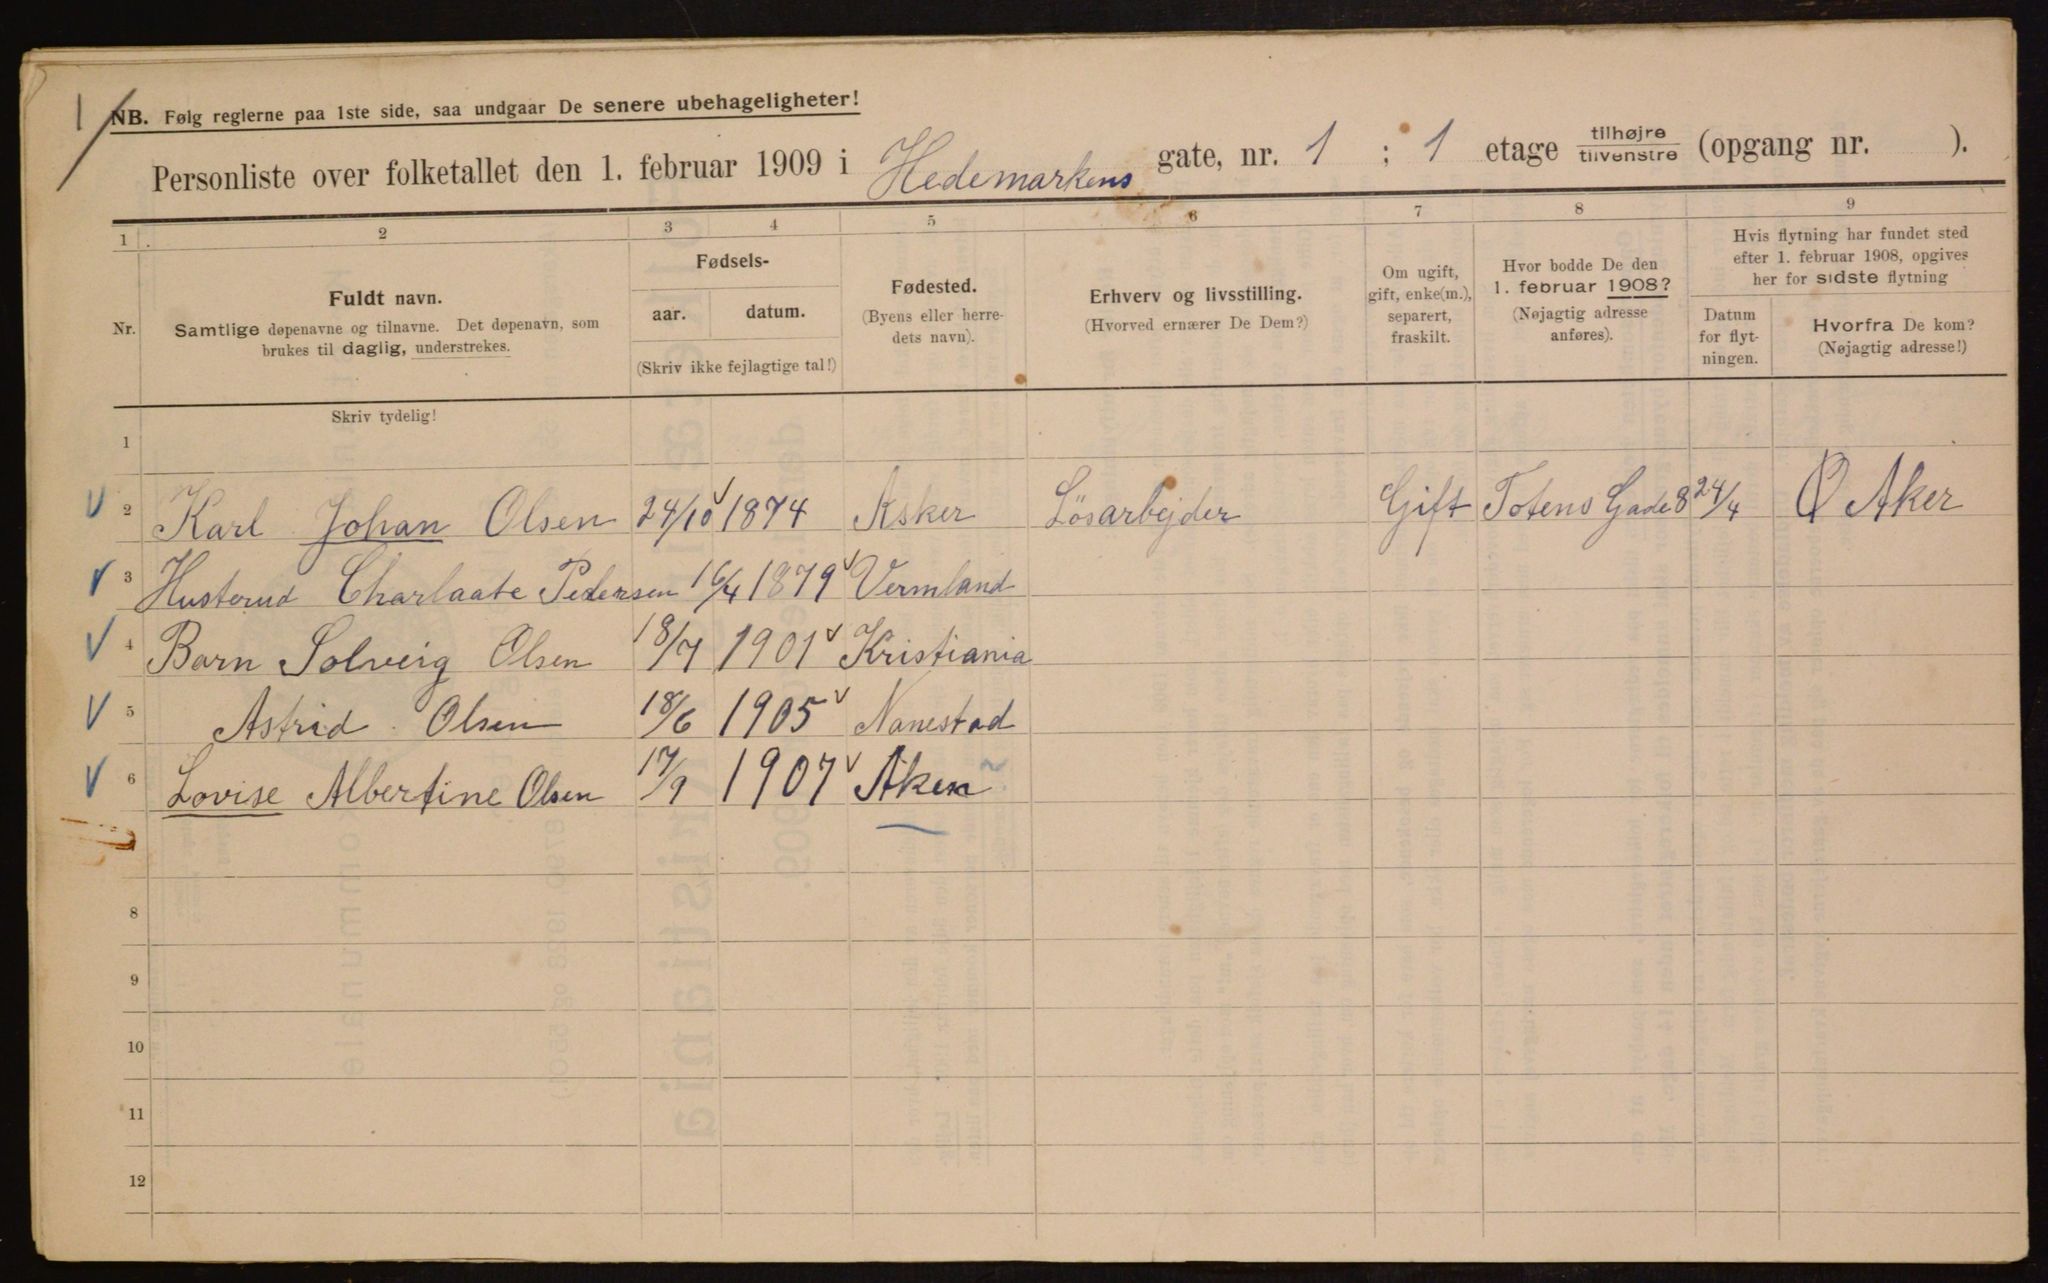 1
NB. Følg reglerne paa 1ste side, saa undgaar De senere ubehageligheter!
Personliste over folketallet den 1. februar 1909 i Hedemarkens gate, nr. 1 ; 1 etage tilhøjre/tilvenstre (opgang nr. ).
1 2 3 4 5 6 7 8 9
Nr.
Fuldt navn.
Samtlige døpenavne og tilnavne. Det døpenavn, som
brukes til daglig, understrekes.
Skriv tydelig!
Fødsels-
aar. datum.
(Skriv ikke fejlagtige tal!)
Fødested.
(Byens eller herre-
dets navn).
Erhverv og livsstilling.
(Hvorved ernærer De Dem?)
Om ugift,
gift, enke(m.),
separert,
fraskilt.
Hvor bodde De den
1. februar 1908?
(Nøjagtig adresse
anføres).
Hvis flytning har fundet sted
efter 1. februar 1908, opgives
her for sidste flytning
Datum
for flyt-
ningen.
Hvorfra De kom?
(Nøjagtig adresse!)
1
2 Karl Johan Olsen 24/10 1874 Asker Løsarbejder Gift Totens Gade 8 24/4 Ø Aker
3 Husterud Charlaate Pedersen 16/4 1879 Vermland
4 Barn Solveig Olsen 18/7 1901 Kristiania
5 Astrid Olsen 18/6 1905 Nanestad
6 Lovise Albertine Olsen 17/9 1907 Aker
8
9
10
11
12